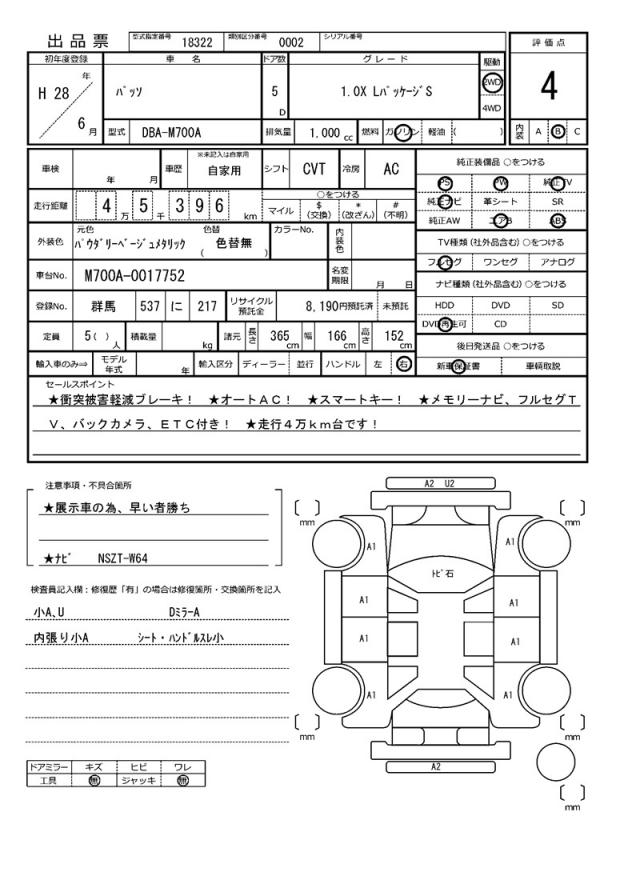 出品票 型式指定番号 18322 類別区分番号 0002 シリアル番号
評価点
4
初年度登録 車名 ドア数 グレード 駆動
H 28 年 6 月 パッソ 5 D 1.0X LパッケージS 2WD 4WD
型式 DBA-M700A 排気量 1.000 cc 燃料 ガソリン 軽油 ( ) 内装 A B C
車検 年 月 車歴 ※未記入は自家用 自家用 シフト CVT 冷房 AC
走行距離 4 万 5 千 3 9 6 km ○をつける
マイル $ (交換) * (改ざん) # (不明)
外装色 元色 パウダリーベージュメタリック 色替 ( 色替無 ) カラーNo. 内装色
車台No. M700A-0017752 名変期限 月 日
登録No. 群馬 537 に 217 リサイクル預託金 8,190円預託済 未預託
定員 5( ) 人 積載量 kg 諸元 長さ 365 cm 幅 166 cm 高さ 152 cm
輸入車のみ⇒ モデル年式 年 輸入区分 ディーラー 並行 ハンドル 左 右
純正装備品 ○をつける
PS PW 純正TV
純正ナビ 革シート SR
純正AW エアB ABS
TV種類(社外品含む)○をつける
フルセグ ワンセグ アナログ
ナビ種類(社外品含む)○をつける
HDD DVD SD
DVD再生可 CD
後日発送品 ○をつける
新車保証書 車輌取説
セールスポイント
★衝突被害軽減ブレーキ! ★オートAC! ★スマートキー! ★メモリーナビ、フルセグT
V、バックカメラ、ETC付き! ★走行4万km台です!
注意事項・不具合箇所
★展示車の為、早い者勝ち
★ナビ NSZT-W64
検査員記入欄:修復歴「有」の場合は修復箇所・交換箇所を記入
小A、U Dミラ-A
内張り小A シート・ハンドルスレ小
ドアミラー キズ ヒビ ワレ
工具 無 ジャッキ 無
A2 U2
[ ] mm [ ] mm
A1 A1
トビ石
A1 A1
A1 A1
A1 A1
[ ] mm [ ] mm
A2
[ ] mm